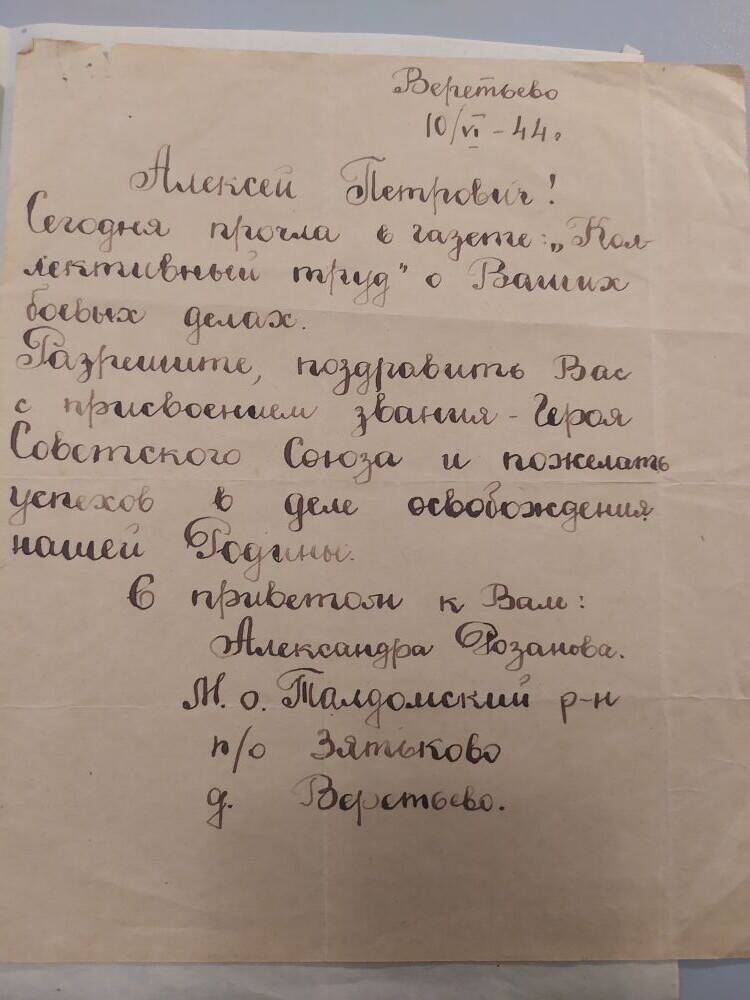 Веретьево
10/VI - 44 г.
Алексей Петрович!
Сегодня прочла в газете: „Кол-
лективный труд" о Ваших
боевых делах.
Разрешите, поздравить Вас
с присвоением звания - Героя
Советского Союза и пожелать
успехов в деле освобождения
нашей Родины.
С приветом к Вам:
Александра Розанова.
М. о. Талдомский р-н
п/о Зятьково
д. Веретьево.